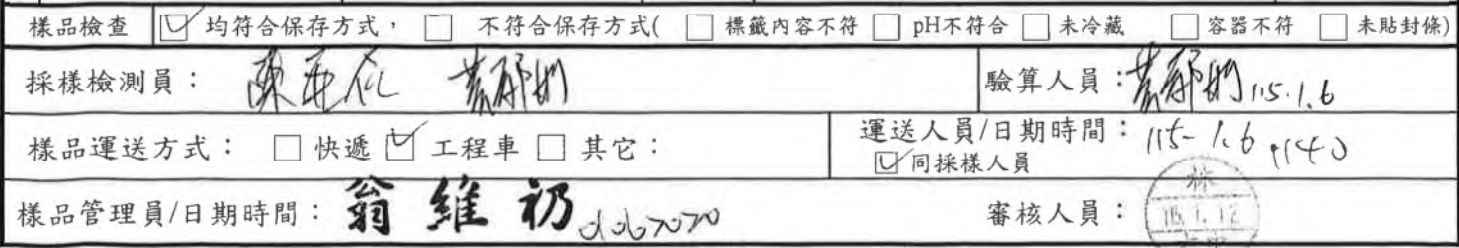 樣品檢查 ☑ 均符合保存方式， □ 不符合保存方式( □ 標籤內容不符 □ pH不符合 □ 未冷藏 □ 容器不符 □ 未貼封條)
採樣檢測員： 驗算人員： 115.1.6
樣品運送方式： □ 快遞 ☑ 工程車 □ 其它： 運送人員/日期時間： 115.1.6 1140
☑ 同採樣人員
樣品管理員/日期時間： 翁維初 審核人員： 林
115.1.12